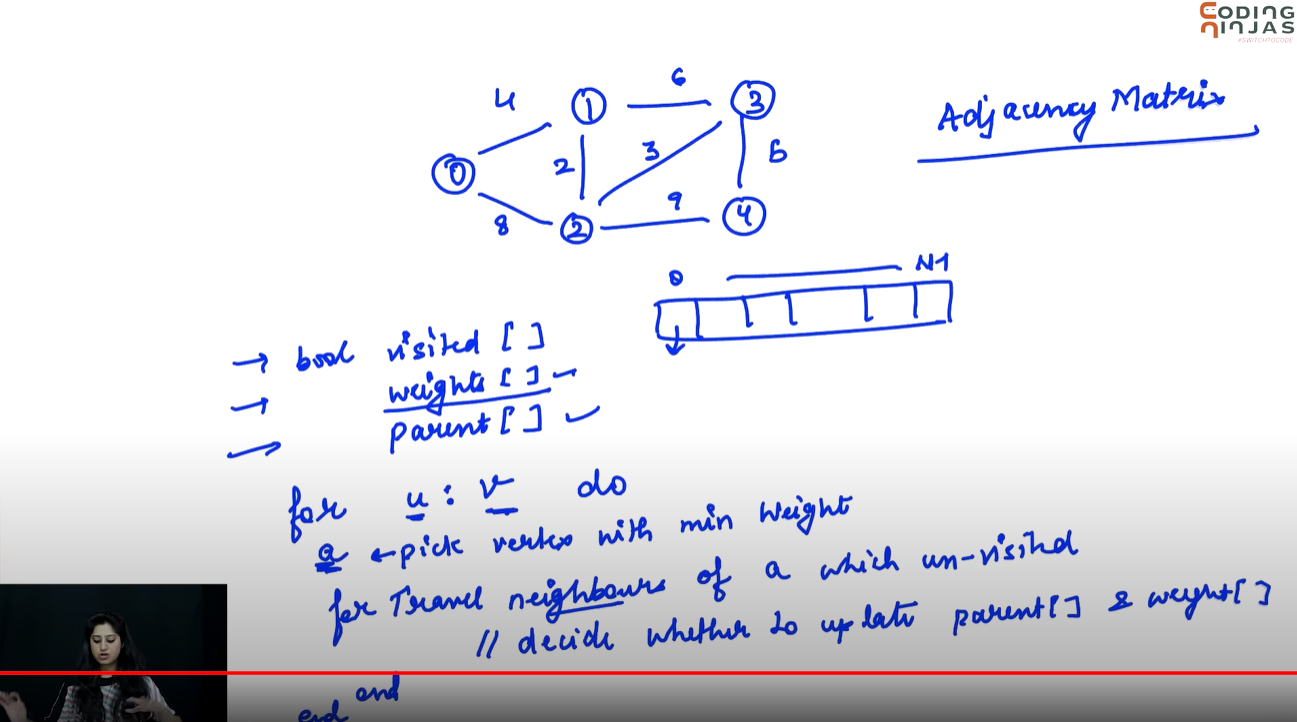 CODING
NINJAS
#SWITCHTOCODE
Adjacency Matrix
4
1
6
3
0
2
3
5
8
2
9
4
0
N-1
→ bool visited [ ]
→ weights [ ]
→ parent [ ]
for u : V do
a ← pick vertex with min weight
for Travel neighbours of a which un-visited
// decide whether to update parent[] & weight[]
end
end